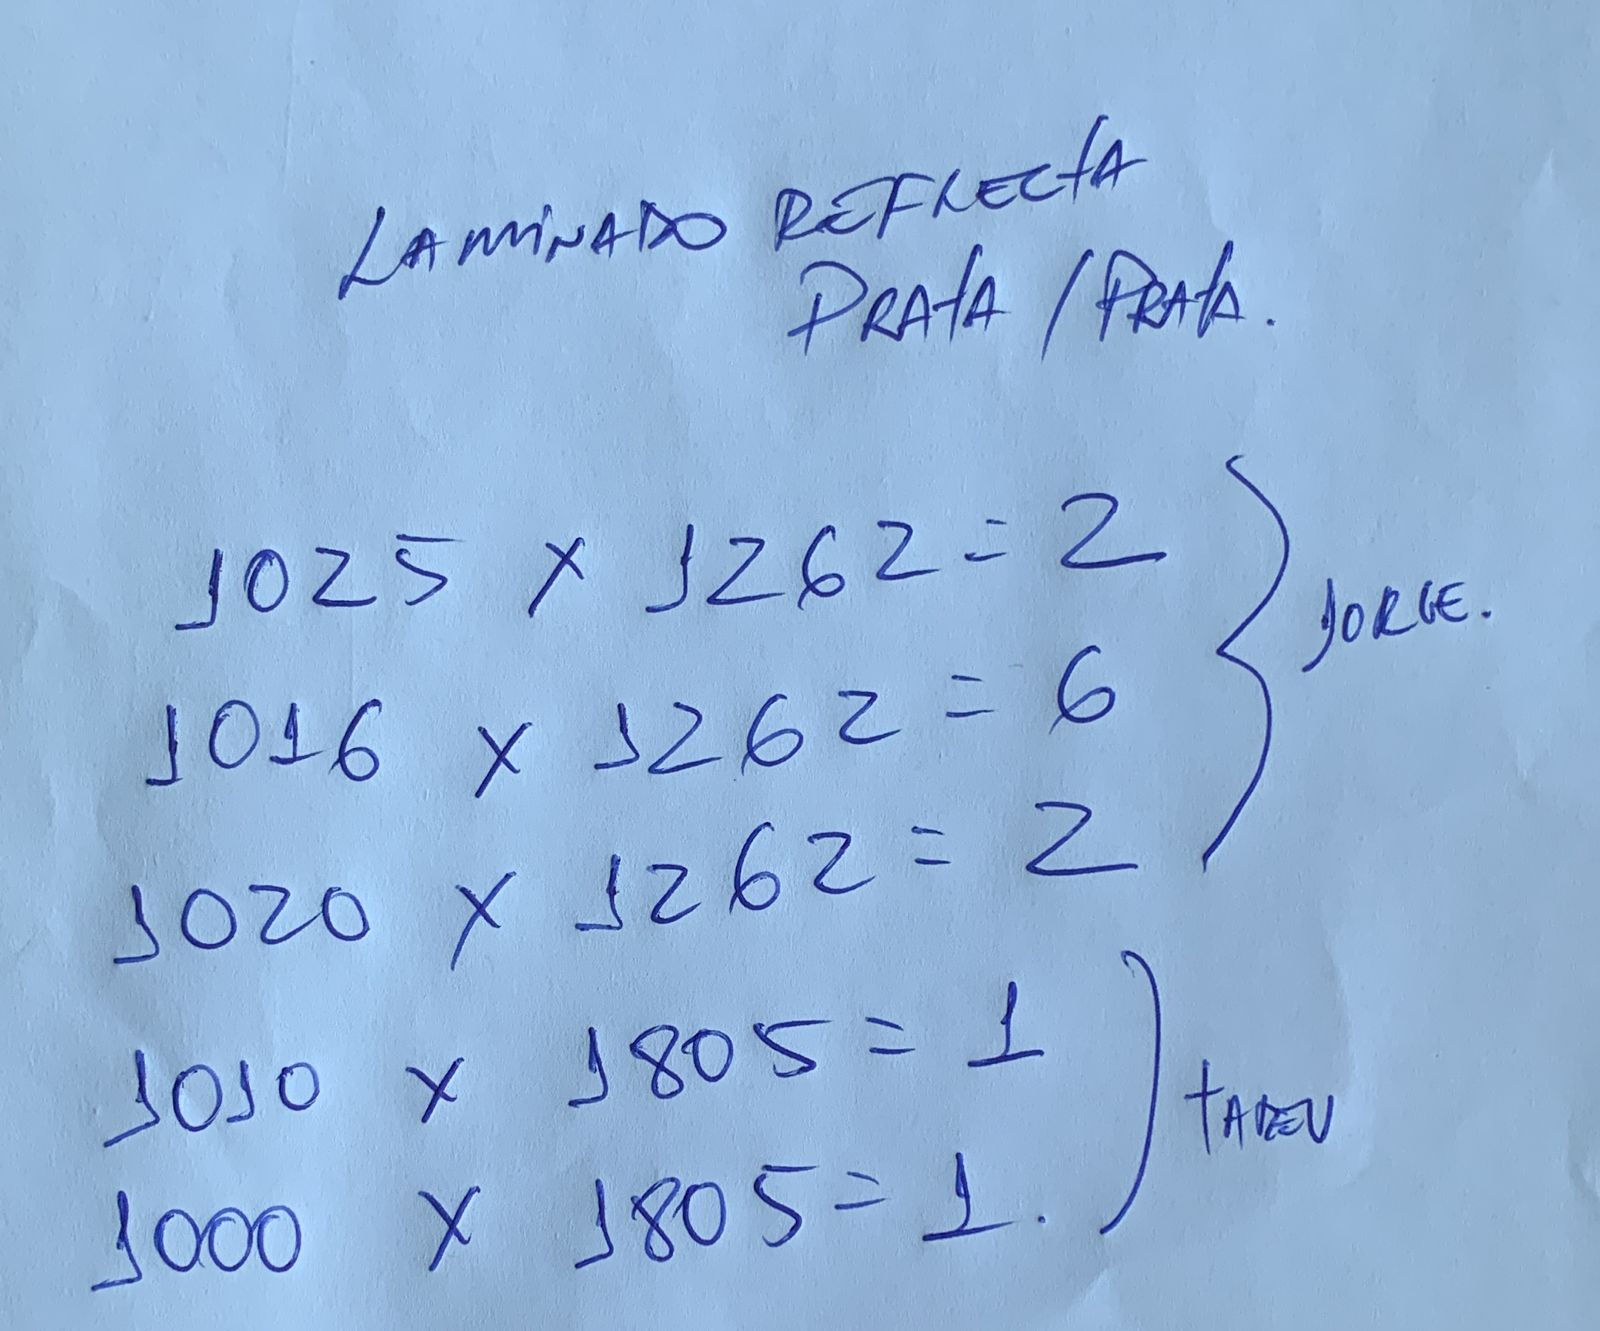 LAMINADO REFLECTA
PRATA / PRATA.
1025 x 1262 = 2
1016 x 1262 = 6
JORGE.
1020 x 1262 = 2
1010 x 1805 = 1
TADEU
1000 x 1805 = 1.